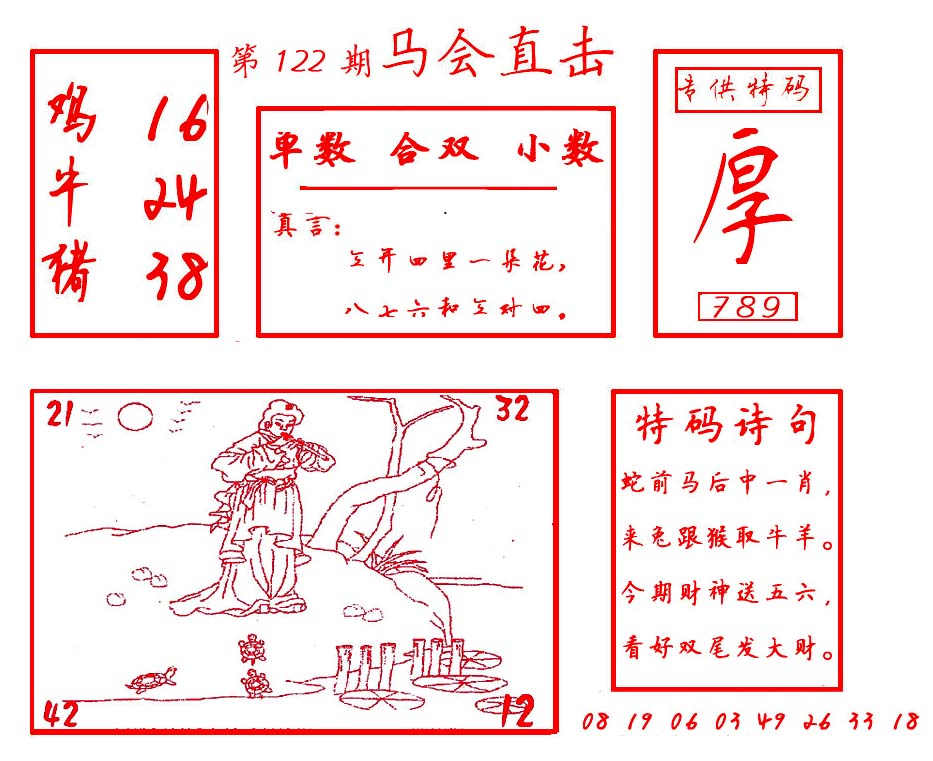 第 122 期 马会直击
鸡 16
牛 24
猪 38
单数 合双 小数
真言：
立开四里一朵花，
八七六和立对四。
专供特码
厚
789
21
32
42
12
特码诗句
蛇前马后中一肖，
来兔跟猴取牛羊。
今期财神送五六，
看好双尾发大财。
08 19 06 03 49 26 33 18